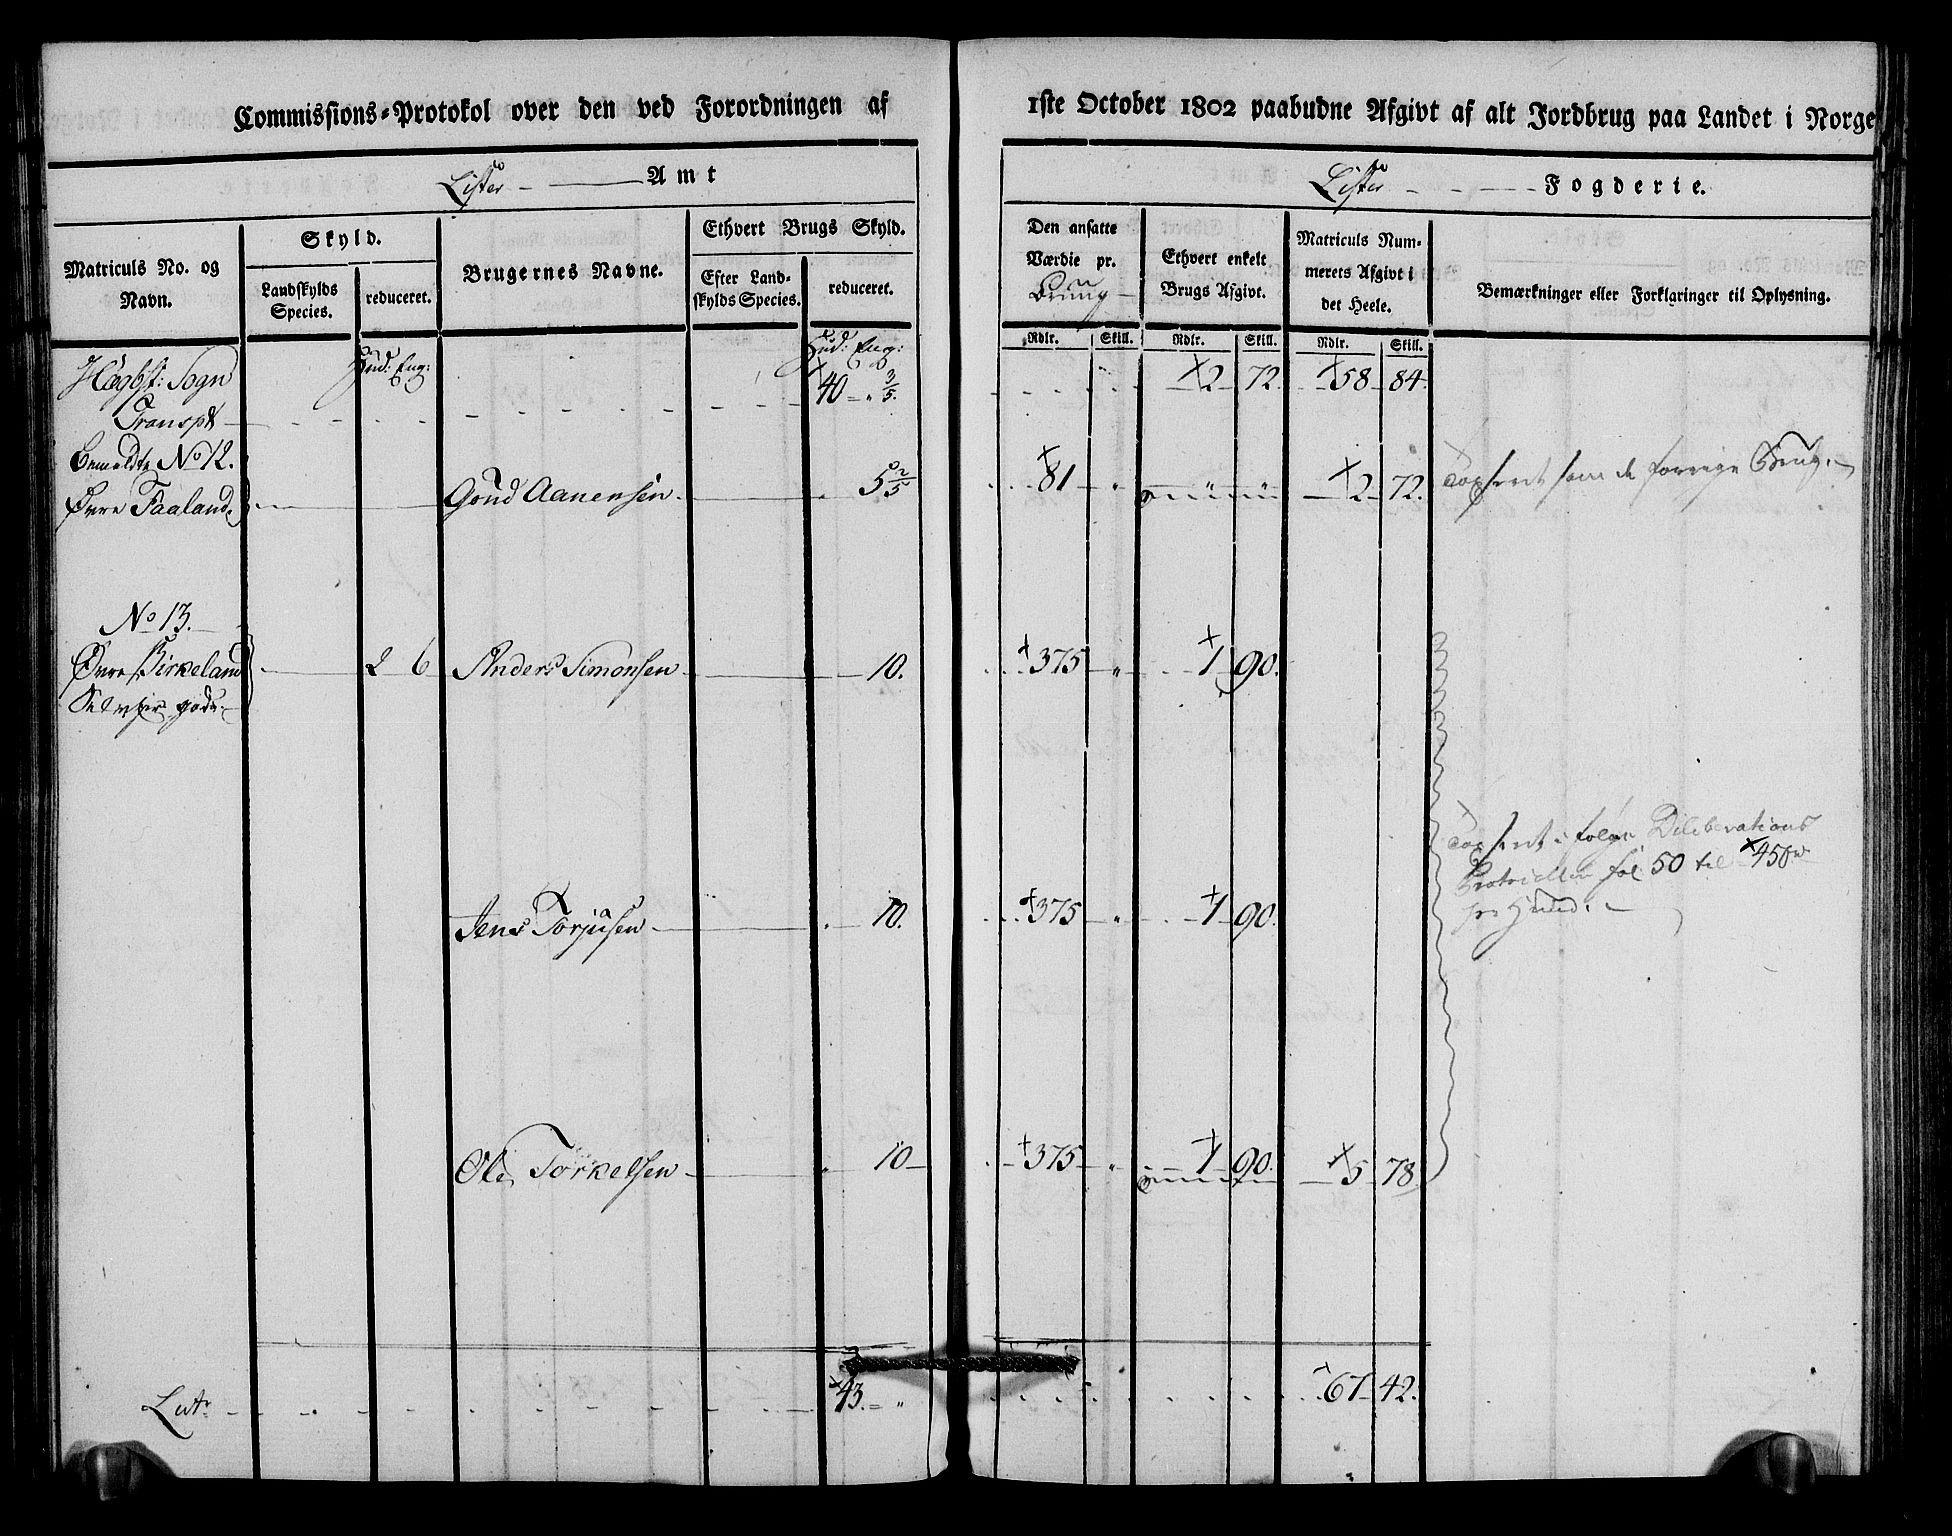 Commissions-Protokol over den ved Forordningen af 1ste October 1802 paabudne Afgivt af alt Jordbrug paa Landet i Norge
Lister Amt
Lister Fogderie.
Matriculs No. og Navn.
Skyld.
Landskylds Species.
reduceret.
Brugernes Navne.
Ethvert Brugs Skyld.
Efter Landskylds Species.
reduceret.
Den ansatte Værdie pr. Brug
Ethvert enkelt Brugs Afgivt.
Matriculs Nummerets Afgivt i det Heele.
Bemærkninger eller Forklaringer til Oplysning.
Rdlr. Skill. Rdlr. Skill. Rdlr. Skill.
Hud: Eng: Hud: Eng:
Hægbst: Sogn
Transpt 40 " 3/5. 2 72. 58 84
bemeldte No 12.
Øvre Faaland. Gond Aanensen 5 2/5 81 " 2 72. Taxseret som de forrige Brug.
No 13.
Øvre Birkeland 2 6 Anders Simonsen 10. 375 " 1 90.
Selveier gods.
Taxseret i følge Deliberations
Protocollen fol 50 til 450 rd
pr Huud.
Jens Torjusen 10. 375 " 1 90.
Ole Torkelsen 10 375 " 1 90. 5 78.
Lat 43. " 67 42.